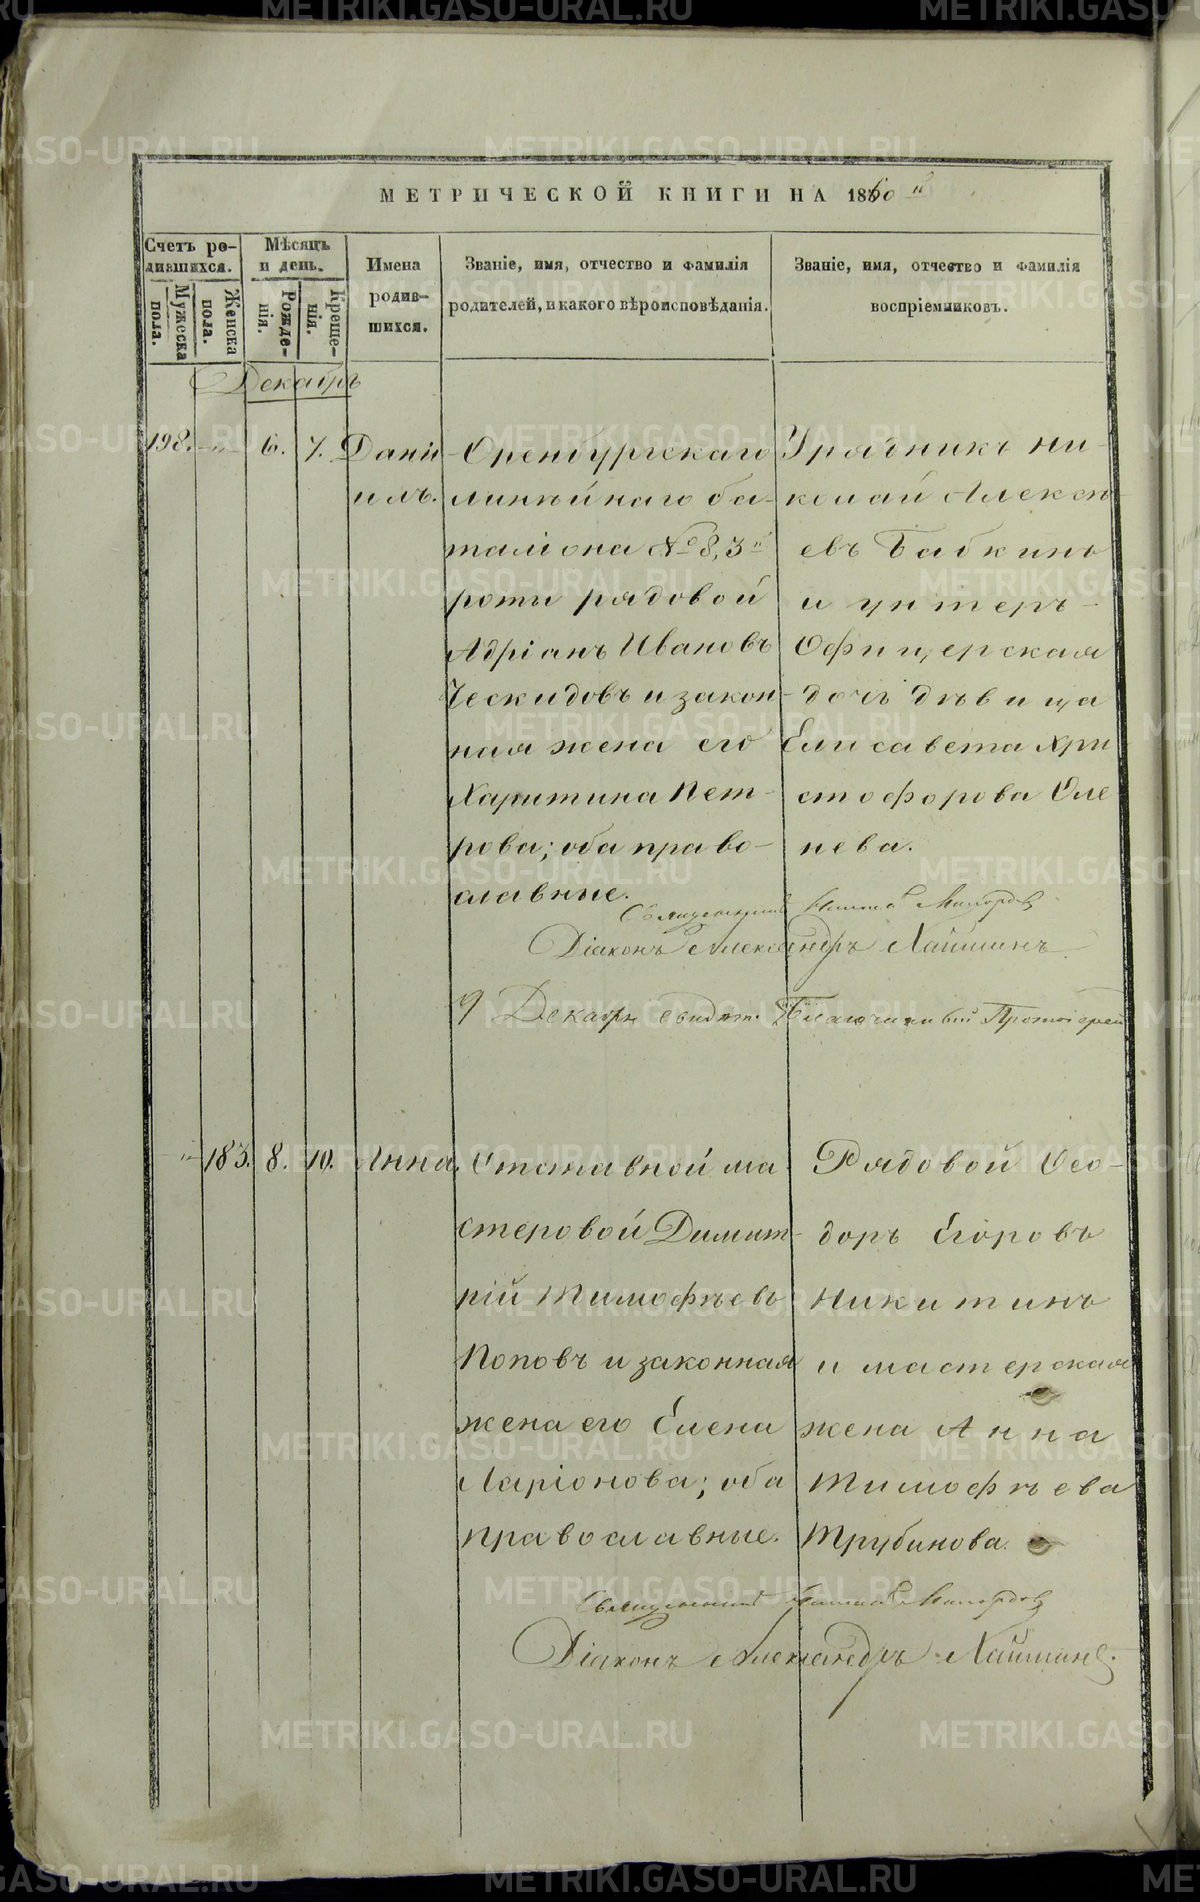 МЕТРИЧЕСКОЙ КНИГИ НА 1860 й
Счетъ ро-
дившихся.
Мужеска
пола.
Женска
пола.
Мѣсяцъ
и день.
Рожде-
нія.
Креще-
нія.
Имена
родив-
шихся.
Званіе, имя, отчество и фамилія
родителей, и какого вѣроисповѣданія.
Званіе, имя, отчество и фамилія
воспріемниковъ.
Декабрь
198. -"- 6. 7.
Дані-
илъ.
Оренбургскаго
линѣйнаго ба-
таліона № 8, 3й
роты рядовой
Адріанъ Ивановъ
Ческидовъ и закон-
ная жена его
Харитина Пет-
рова; оба право-
славные.
Урядникъ Ни-
колай Алексѣ-
евъ Бабкинъ
и унтеръ-
Офицерская
дочь дѣвица
Елисавета Хри
стофорова Оле
нева.
Священникъ
Діаконъ Александръ Хаймин
9 Декабря свидѣт. Благочинный Протоіерей
-"- 183. 8. 10.
Анна.
Отставной ма
стеровой Димит-
рій Тимофѣевъ
Поповъ и законная
жена его Елена
Ларіонова; оба
православные.
Рядовой Ѳео-
доръ Егоровъ
Никитинъ
и мастерская
жена Анна
Тимофѣева
Трубинова.
Священникъ
Діаконъ Александръ Хаймин
METRIKI.GASO-URAL.RU